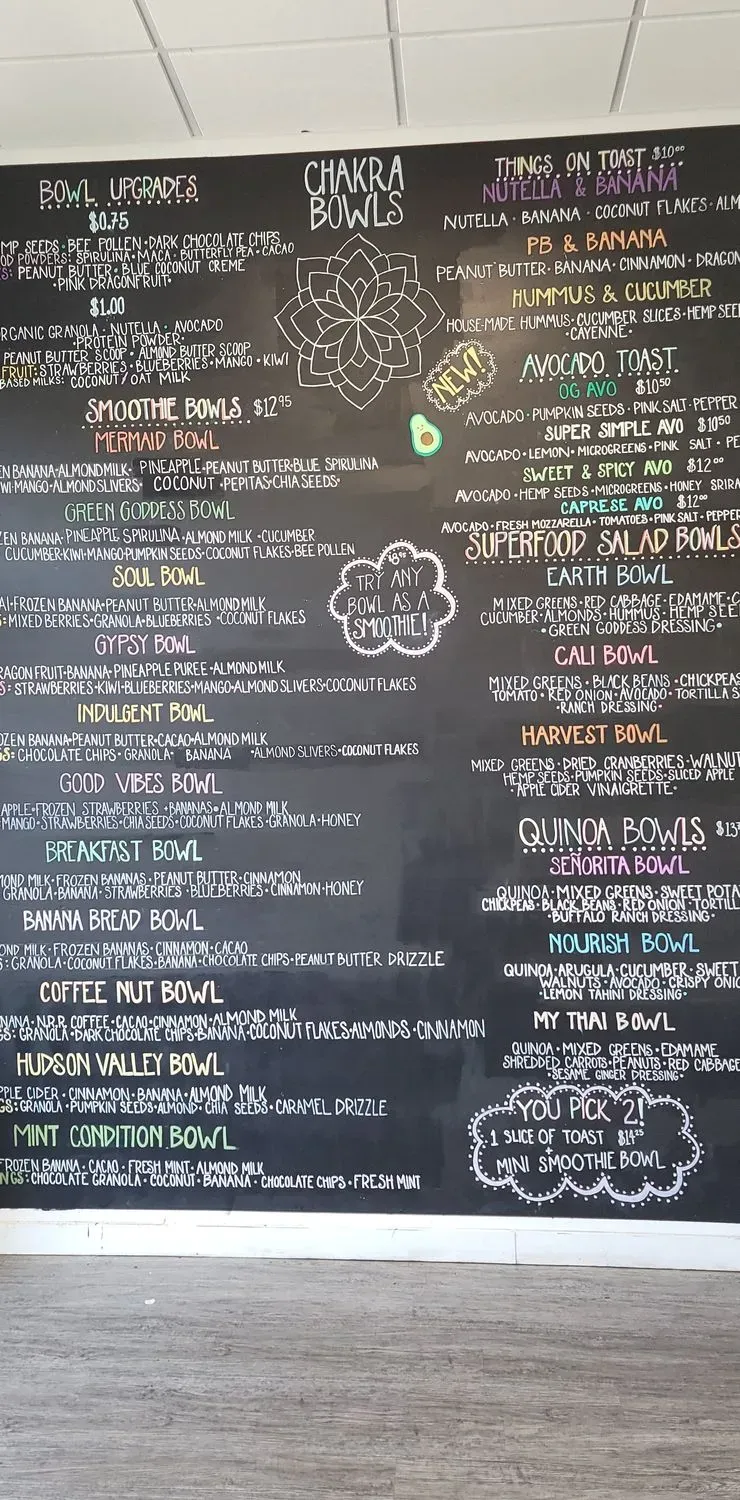 BOWL UPGRADES
$0.75
MP SEEDS · BEE POLLEN · DARK CHOCOLATE CHIPS
OD POWDERS: SPIRULINA · MACA · BUTTERFLY PEA · CACAO
S: PEANUT BUTTER · BLUE COCONUT CREME
· PINK DRAGONFRUIT ·
$1.00
RGANIC GRANOLA · NUTELLA · AVOCADO
· PROTEIN POWDER ·
PEANUT BUTTER SCOOP · ALMOND BUTTER SCOOP
FRUIT: STRAWBERRIES · BLUEBERRIES · MANGO · KIWI
BASED MILKS: COCONUT/OAT MILK
SMOOTHIE BOWLS $12.95
MERMAID BOWL
EN BANANA · ALMOND MILK · PINEAPPLE · PEANUT BUTTER · BLUE SPIRULINA
WI · MANGO · ALMOND SLIVERS COCONUT · PEPITAS · CHIA SEEDS ·
GREEN GODDESS BOWL
ZEN BANANA · PINEAPPLE SPIRULINA · ALMOND MILK · CUCUMBER
CUCUMBER · KIWI · MANGO · PUMPKIN SEEDS · COCONUT FLAKES · BEE POLLEN
SOUL BOWL
AI · FROZEN BANANA · PEANUT BUTTER · ALMOND MILK
S: MIXED BERRIES · GRANOLA · BLUEBERRIES · COCONUT FLAKES
GYPSY BOWL
RAGON FRUIT · BANANA · PINEAPPLE PUREE · ALMOND MILK
S: STRAWBERRIES · KIWI · BLUEBERRIES · MANGO · ALMOND SLIVERS · COCONUT FLAKES
INDULGENT BOWL
OZEN BANANA · PEANUT BUTTER · CACAO · ALMOND MILK
GS: CHOCOLATE CHIPS · GRANOLA · BANANA · ALMOND SLIVERS · COCONUT FLAKES
GOOD VIBES BOWL
APPLE · FROZEN STRAWBERRIES · BANANAS · ALMOND MILK
MANGO · STRAWBERRIES · CHIA SEEDS · COCONUT FLAKES · GRANOLA · HONEY
BREAKFAST BOWL
MOND MILK · FROZEN BANANAS · PEANUT BUTTER · CINNAMON
GRANOLA · BANANA · STRAWBERRIES · BLUEBERRIES · CINNAMON · HONEY
BANANA BREAD BOWL
OND MILK · FROZEN BANANAS · CINNAMON · CACAO
S: GRANOLA · COCONUT FLAKES · BANANA · CHOCOLATE CHIPS · PEANUT BUTTER DRIZZLE
COFFEE NUT BOWL
NANA · N.R.R. COFFEE · CACAO · CINNAMON · ALMOND MILK
GS: GRANOLA · DARK CHOCOLATE CHIPS · BANANA · COCONUT FLAKES · ALMONDS · CINNAMON
HUDSON VALLEY BOWL
PPLE CIDER · CINNAMON · BANANA · ALMOND MILK
GS: GRANOLA · PUMPKIN SEEDS · ALMOND · CHIA SEEDS · CARAMEL DRIZZLE
MINT CONDITION BOWL
FROZEN BANANA · CACAO · FRESH MINT · ALMOND MILK
NGS: CHOCOLATE GRANOLA · COCONUT · BANANA · CHOCOLATE CHIPS · FRESH MINT
CHAKRA
BOWLS
NEW!
TRY ANY
BOWL AS A
SMOOTHIE!
THINGS ON TOAST $10.00
NUTELLA & BANANA
NUTELLA · BANANA · COCONUT FLAKES · ALM
PB & BANANA
PEANUT BUTTER · BANANA · CINNAMON · DRAGON
HUMMUS & CUCUMBER
HOUSE-MADE HUMMUS · CUCUMBER SLICES · HEMP SEE
· CAYENNE ·
AVOCADO TOAST
OG AVO $10.50
AVOCADO · PUMPKIN SEEDS · PINK SALT · PEPPER
SUPER SIMPLE AVO $10.50
AVOCADO · LEMON · MICROGREENS · PINK SALT · PE
SWEET & SPICY AVO $12.00
AVOCADO · HEMP SEEDS · MICROGREENS · HONEY SRIRA
CAPRESE AVO $12.00
AVOCADO · FRESH MOZZARELLA · TOMATOES · PINK SALT · PEPPER
SUPERFOOD SALAD BOWLS
EARTH BOWL
MIXED GREENS · RED CABBAGE · EDAMAME · C
CUCUMBER · ALMONDS · HUMMUS · HEMP SEE
· GREEN GODDESS DRESSING ·
CALI BOWL
MIXED GREENS · BLACK BEANS · CHICKPEAS
TOMATO · RED ONION · AVOCADO · TORTILLA S
· RANCH DRESSING ·
HARVEST BOWL
MIXED GREENS · DRIED CRANBERRIES · WALNUT
HEMP SEEDS · PUMPKIN SEEDS · SLICED APPLE
· APPLE CIDER VINAIGRETTE ·
QUINOA BOWLS $13
SEÑORITA BOWL
QUINOA · MIXED GREENS · SWEET POTA
CHICKPEAS · BLACK BEANS · RED ONION · TORTILL
· BUFFALO RANCH DRESSING ·
NOURISH BOWL
QUINOA · ARUGULA · CUCUMBER · SWEET
WALNUTS · AVOCADO · CRISPY ONIO
· LEMON TAHINI DRESSING ·
MY THAI BOWL
QUINOA · MIXED GREENS · EDAMAME
SHREDDED CARROTS · PEANUTS · RED CABBAGE
· SESAME GINGER DRESSING ·
YOU PICK 2!
1 SLICE OF TOAST $14.25
+
MINI SMOOTHIE BOWL